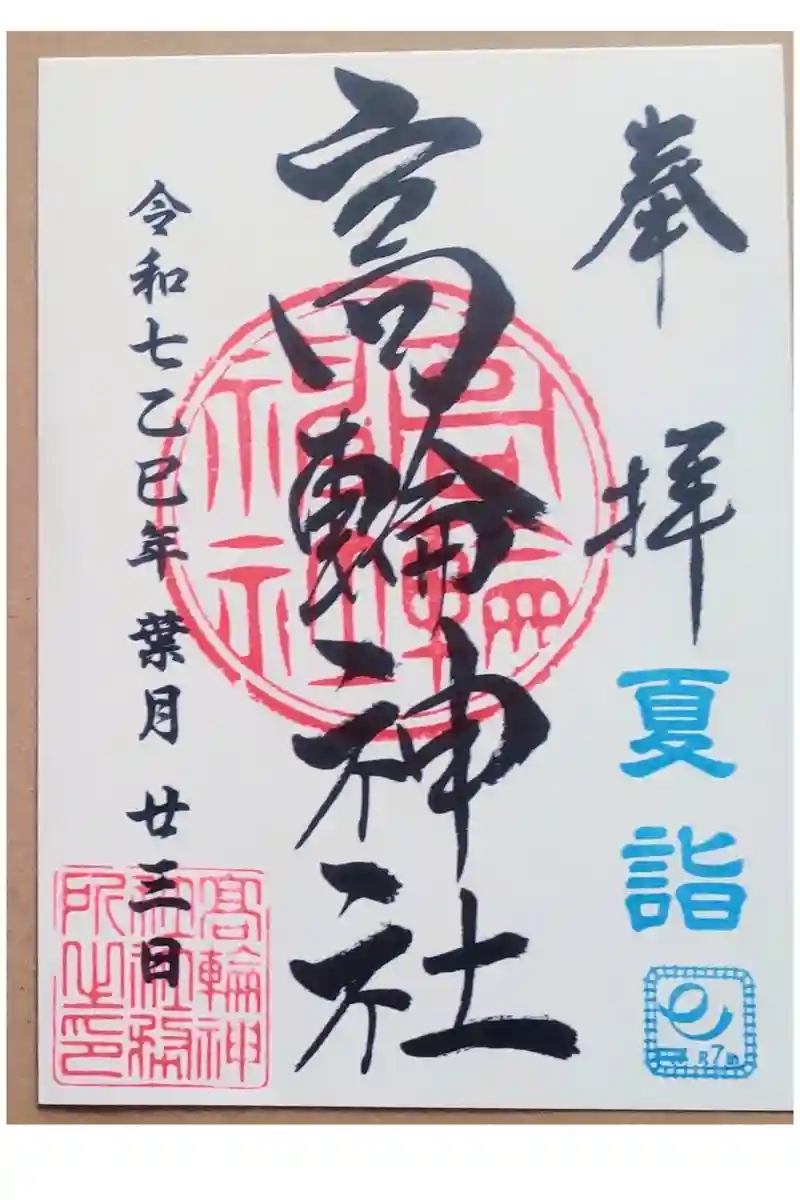 奉拝
夏詣
高輪神社
令和七乙巳年 葉月 廿三日
高輪神社
高輪神
社社務
所之印
R7